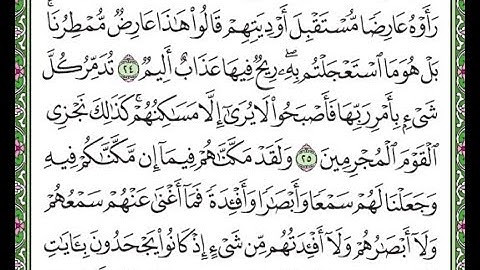 رَأَوْهُ عَارِضًا مُّسْتَقْبِلَ أَوْدِيَتِهِمْ قَالُوا۟ هَـٰذَا عَارِضٌ مُّمْطِرُنَا ۚ
بَلْ هُوَ مَا ٱسْتَعْجَلْتُم بِهِۦ ۖ رِيحٌ فِيهَا عَذَابٌ أَلِيمٌ ٢٤ تُدَمِّرُ كُلَّ
شَىْءٍۭ بِأَمْرِ رَبِّهَا فَأَصْبَحُوا۟ لَا يُرَىٰٓ إِلَّا مَسَـٰكِنُهُمْ ۚ كَذَٰلِكَ نَجْزِى
ٱلْقَوْمَ ٱلْمُجْرِمِينَ ٢٥ وَلَقَدْ مَكَّنَّـٰهُمْ فِيمَآ إِن مَّكَّنَّـٰكُمْ فِيهِ
وَجَعَلْنَا لَهُمْ سَمْعًا وَأَبْصَـٰرًا وَأَفْـِٔدَةً فَمَآ أَغْنَىٰ عَنْهُمْ سَمْعُهُمْ
وَلَآ أَبْصَـٰرُهُمْ وَلَآ أَفْـِٔدَتُهُم مِّن شَىْءٍ إِذْ كَانُوا۟ يَجْحَدُونَ بِـَٔايَـٰتِ